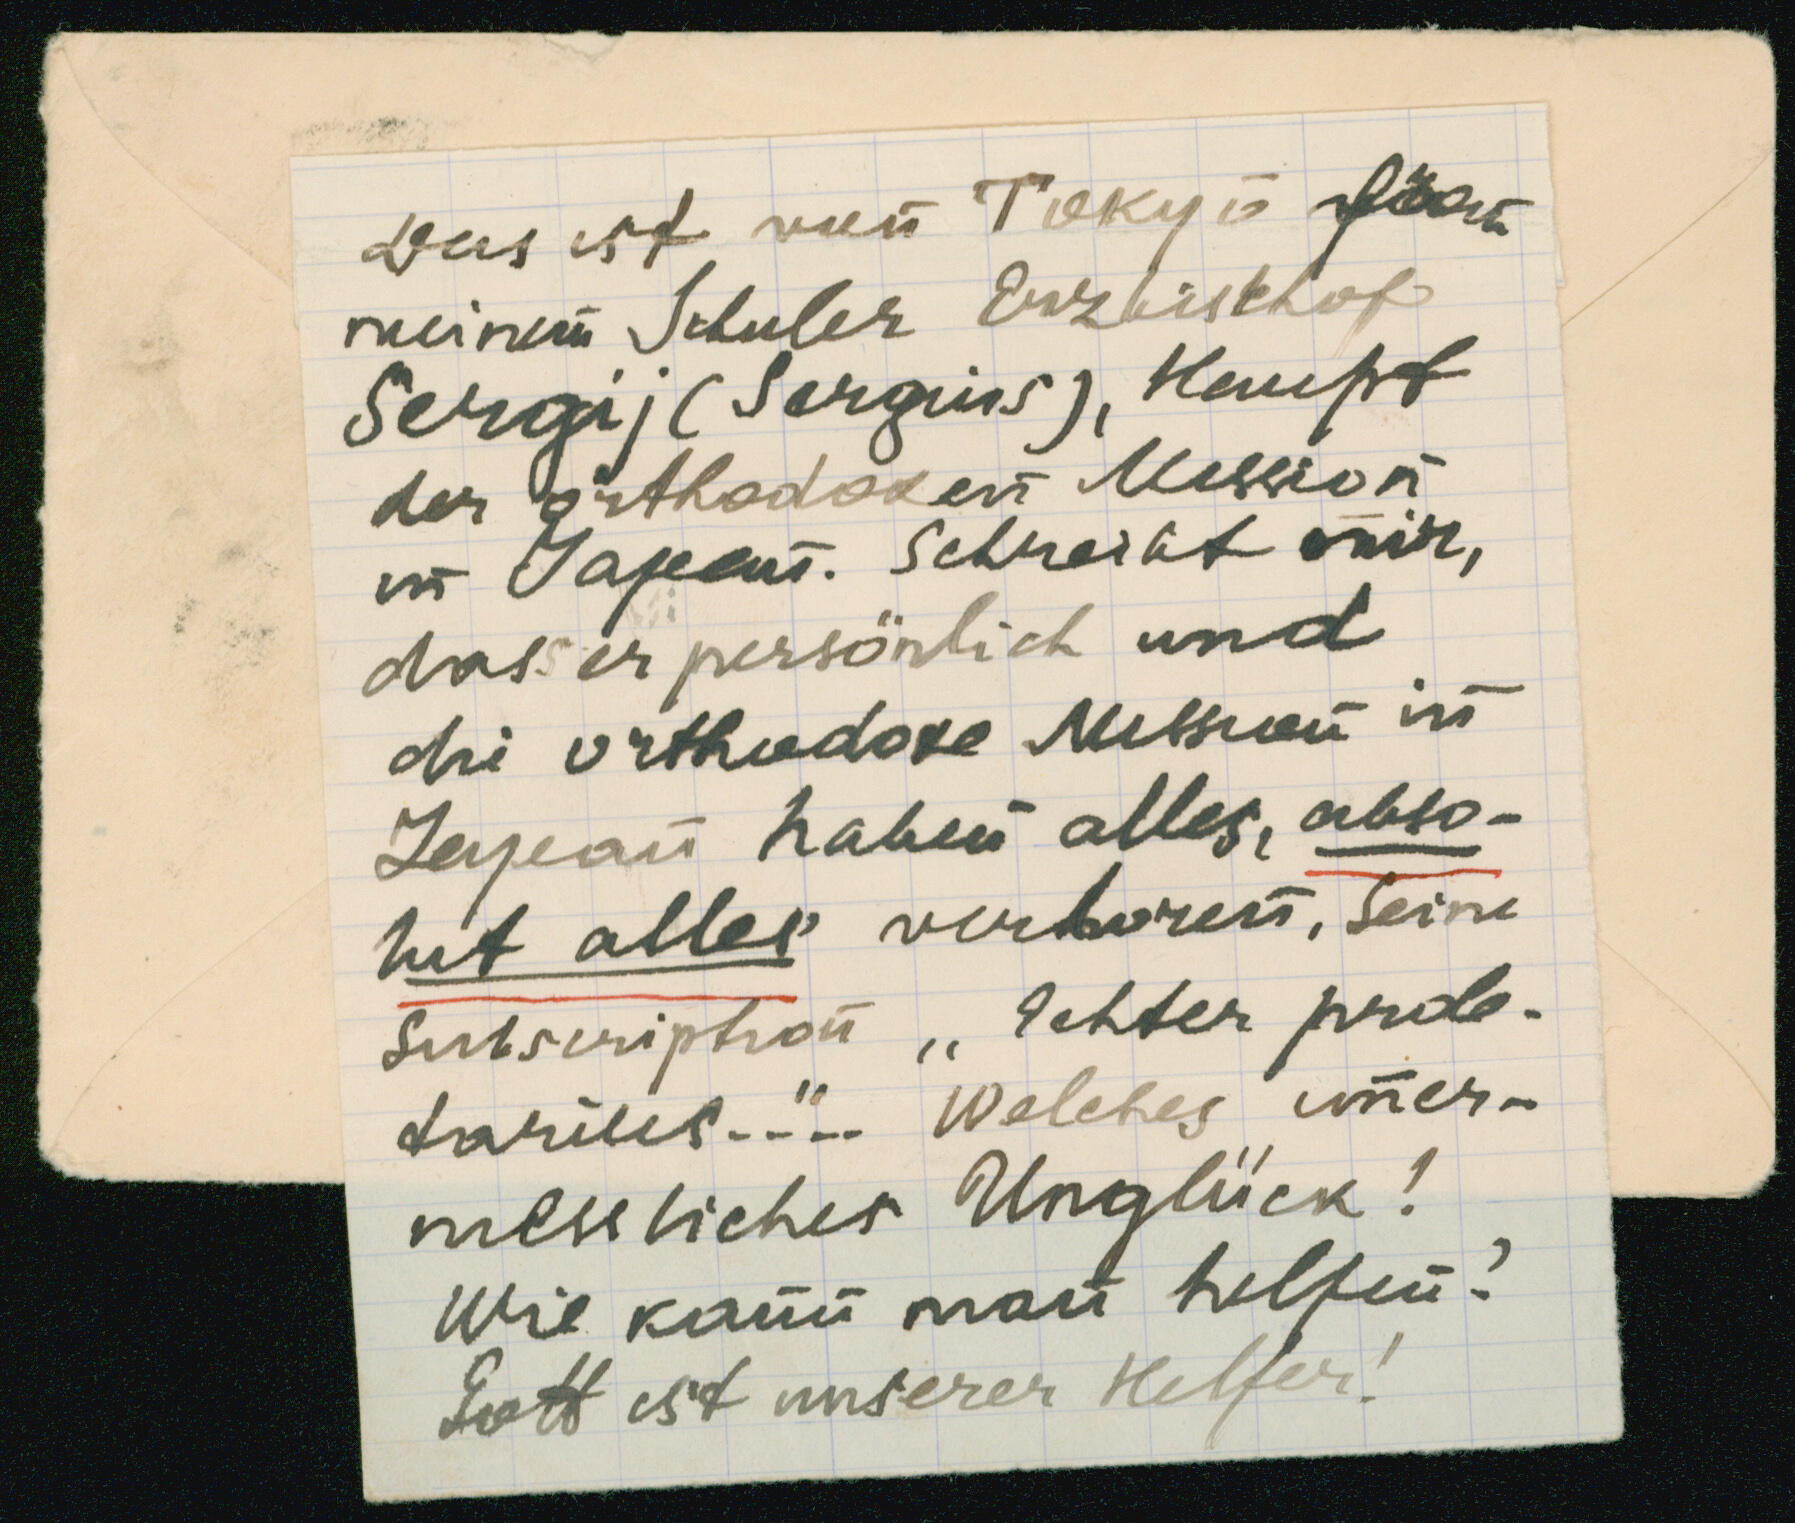 Das ist von Tokyo von
meinem Schuler Erzbischof
Sergij (Sergius), Haupt
der orthodoxen Mission
in Japan. Schreibt mir,
dass er persönlich und
die orthodoxe Mission in
Japan haben alles, abso-
lut alles verloren. Seine
Subscription „Echter prole-
tarius---"-- Welches uner-
messliches Unglück!
Wie kann man helfen?
Gott ist unserer Helfer!